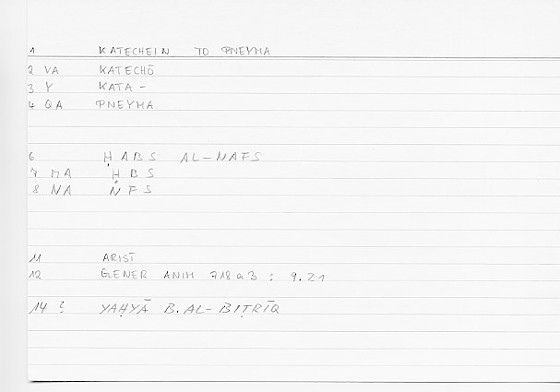 1 KATECHEIN TO PNEYMA
2 VA KATECHŌ
3 Y KATA-
4 QA PNEYMA
6 ḤABS AL-NAFS
7 MA ḤBS
8 NA NFS
11 ARIST
12 GENER ANIM 718 a 3 : 9.21
14 YAḤYĀ B. AL-BIṬRĪQ